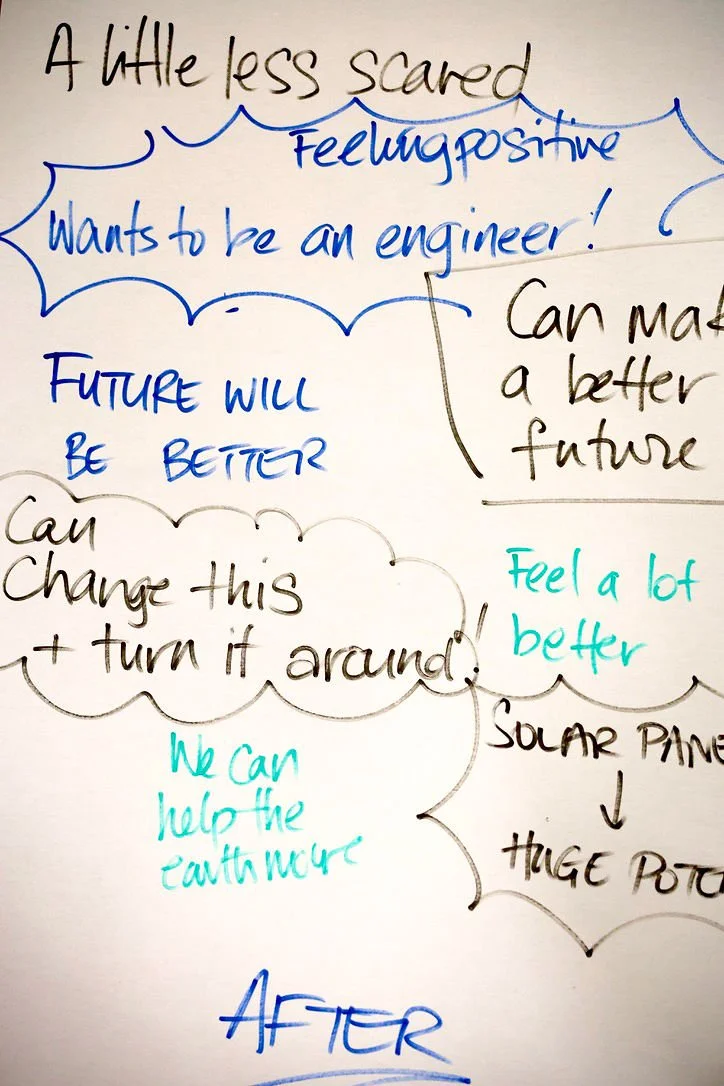 A little less scared
Feeling positive
Wants to be an engineer!
Can mak
a better
future
FUTURE WILL
BE BETTER
Can
Change this
+ turn it around!
Feel a lot
better
SOLAR PANE
↓
HUGE POTE
We can
help the
earth more
AFTER